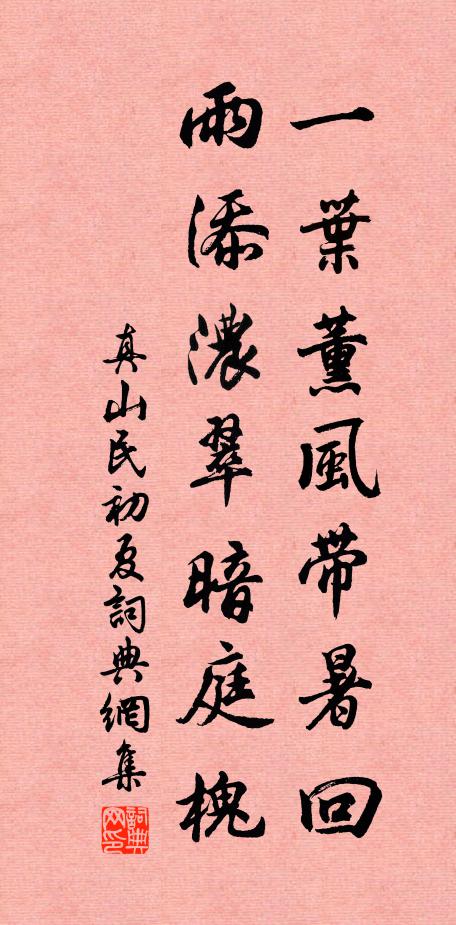 一葉薰風帶暑回
雨添濃翠暗庭槐
真山民初夏詞典網集
詞典网印